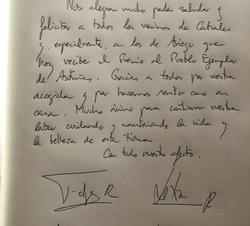 Nos alegra mucho poder saludar y
felicitar a todos los vecinos de Cabrales
y, especialmente, a los de Asiego que
hoy recibe el Premio al Pueblo Ejemplar
de Asturias. Gracias a todos por vuestra
acogida y por hacernos sentir como en
casa. Mucho ánimo para continuar vuestra
labor cuidando y manteniendo la vida y
la belleza de esta tierra.
Con todo nuestro afecto.
Felipe R. Letizia R.